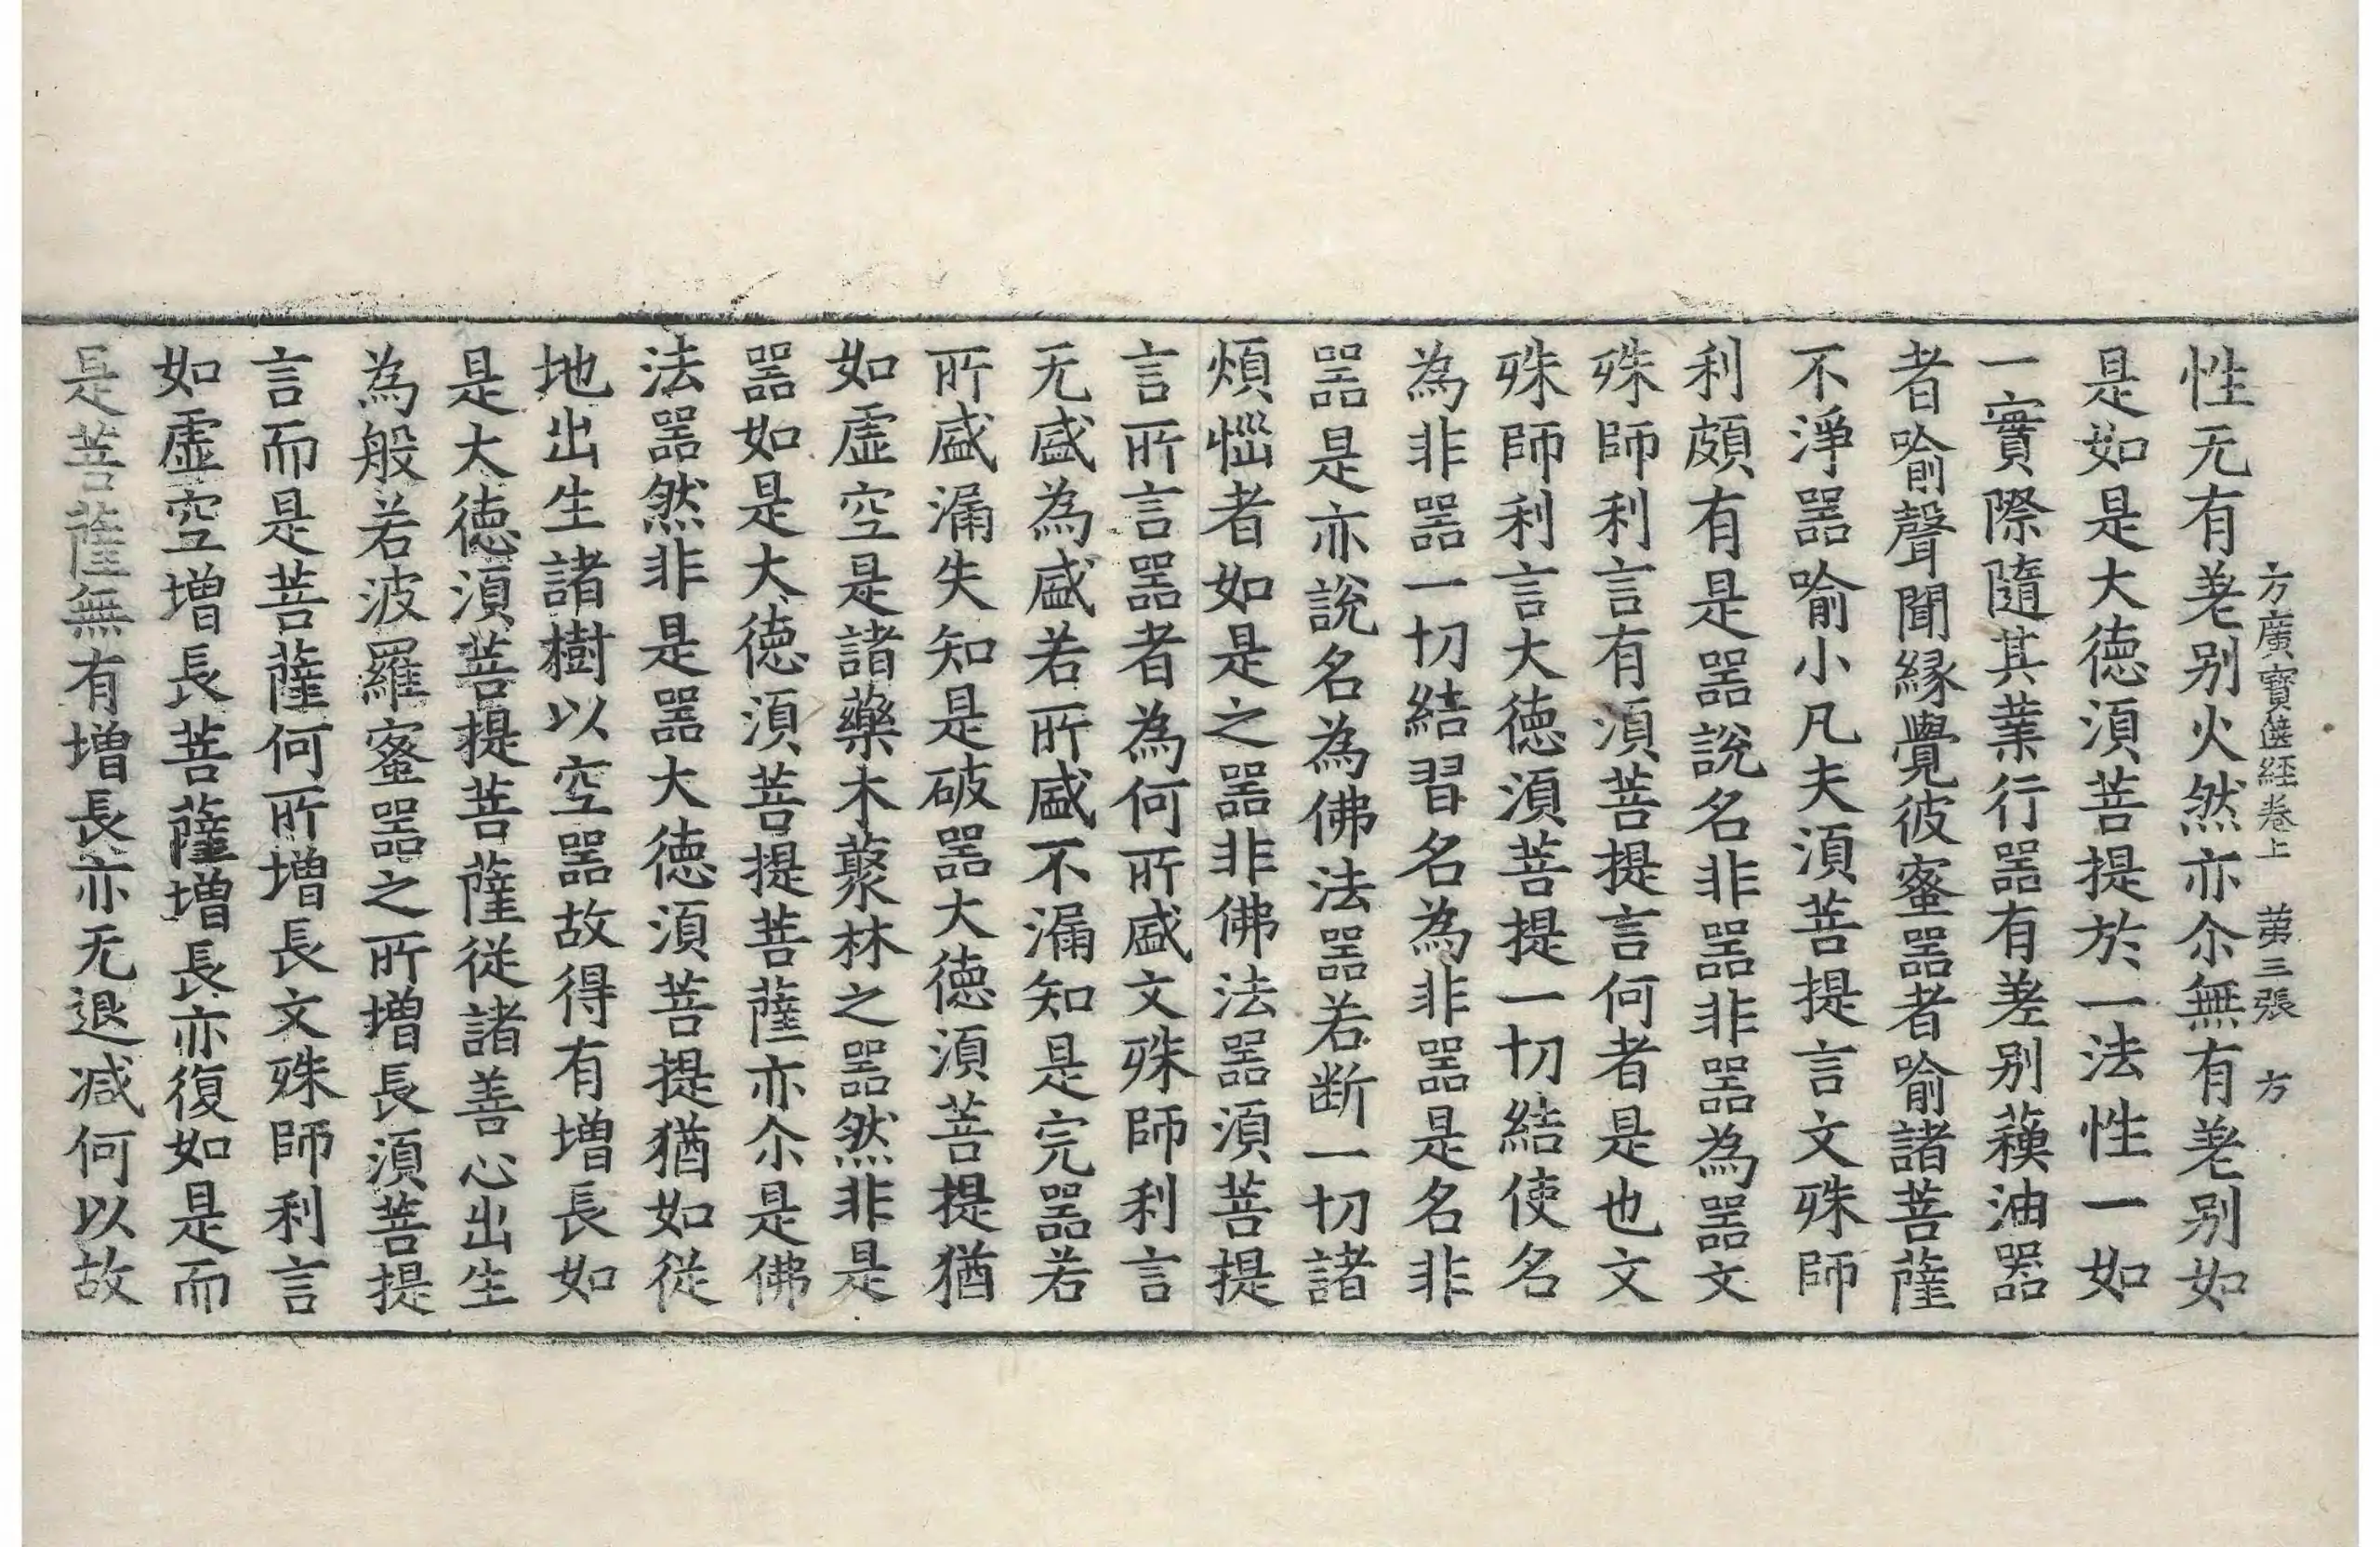 方廣寶篋経卷上 苐三張 方
性无有差别火然亦尒無有差别如
是如是大徳湏菩提於一法性一如
一實際隨其業行器有差别蘓油器
者喻聲聞縁覺彼蜜器者喻諸菩薩
不淨器喻小凡夫湏菩提言文殊師
利頗有是器說名非器非器為器文
殊師利言有湏菩提言何者是也文
殊師利言大徳湏菩提一切結使名
為非器一切結習名為非器是名非
器是亦說名為佛法器若断一切諸
煩惱者如是之器非佛法器湏菩提
言所言器者為何所盛文殊師利言
无盛為盛若所盛不漏知是完器若
所盛漏失知是破器大徳湏菩提猶
如虛空是諸藥木藂林之器然非是
器如是大徳湏菩提菩薩亦尒是佛
法器然非是器大徳湏菩提猶如從
地出生諸樹以空器故得有增長如
是大徳湏菩提菩薩從諸善心出生
為般若波羅蜜器之所增長湏菩提
言而是菩薩何所增長文殊師利言
如虛空增長菩薩增長亦復如是而
是菩薩無有增長亦无退减何以故